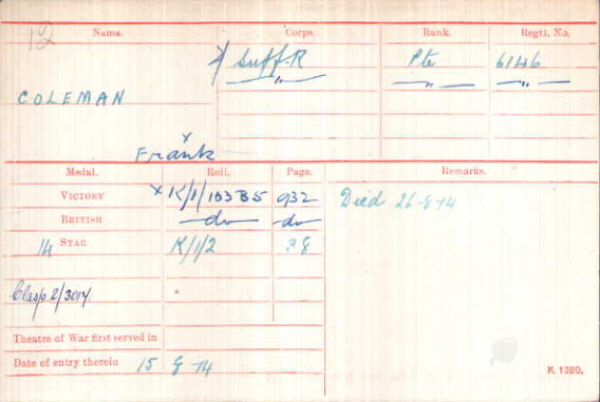 12
Name. Corps. Rank. Regtl. No.
X Suff. R Pte 6146
" " "
COLEMAN
x
Frank
Medal. Roll. Page. Remarks.
VICTORY x K/1/103 B5 932 Died 26-8-14
BRITISH do do
14 STAR K/1/2 38
Clasp 2/3014.
Theatre of War first served in
Date of entry therein 15 8 14
K. 1380.